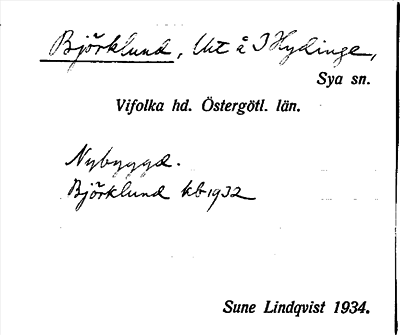 Björklund, Utå I Hydinge,
Sya sn.
Vifolka hd. Östergötl. län.
Nybyggd.
Björklund kb 1932
Sune Lindqvist 1934.